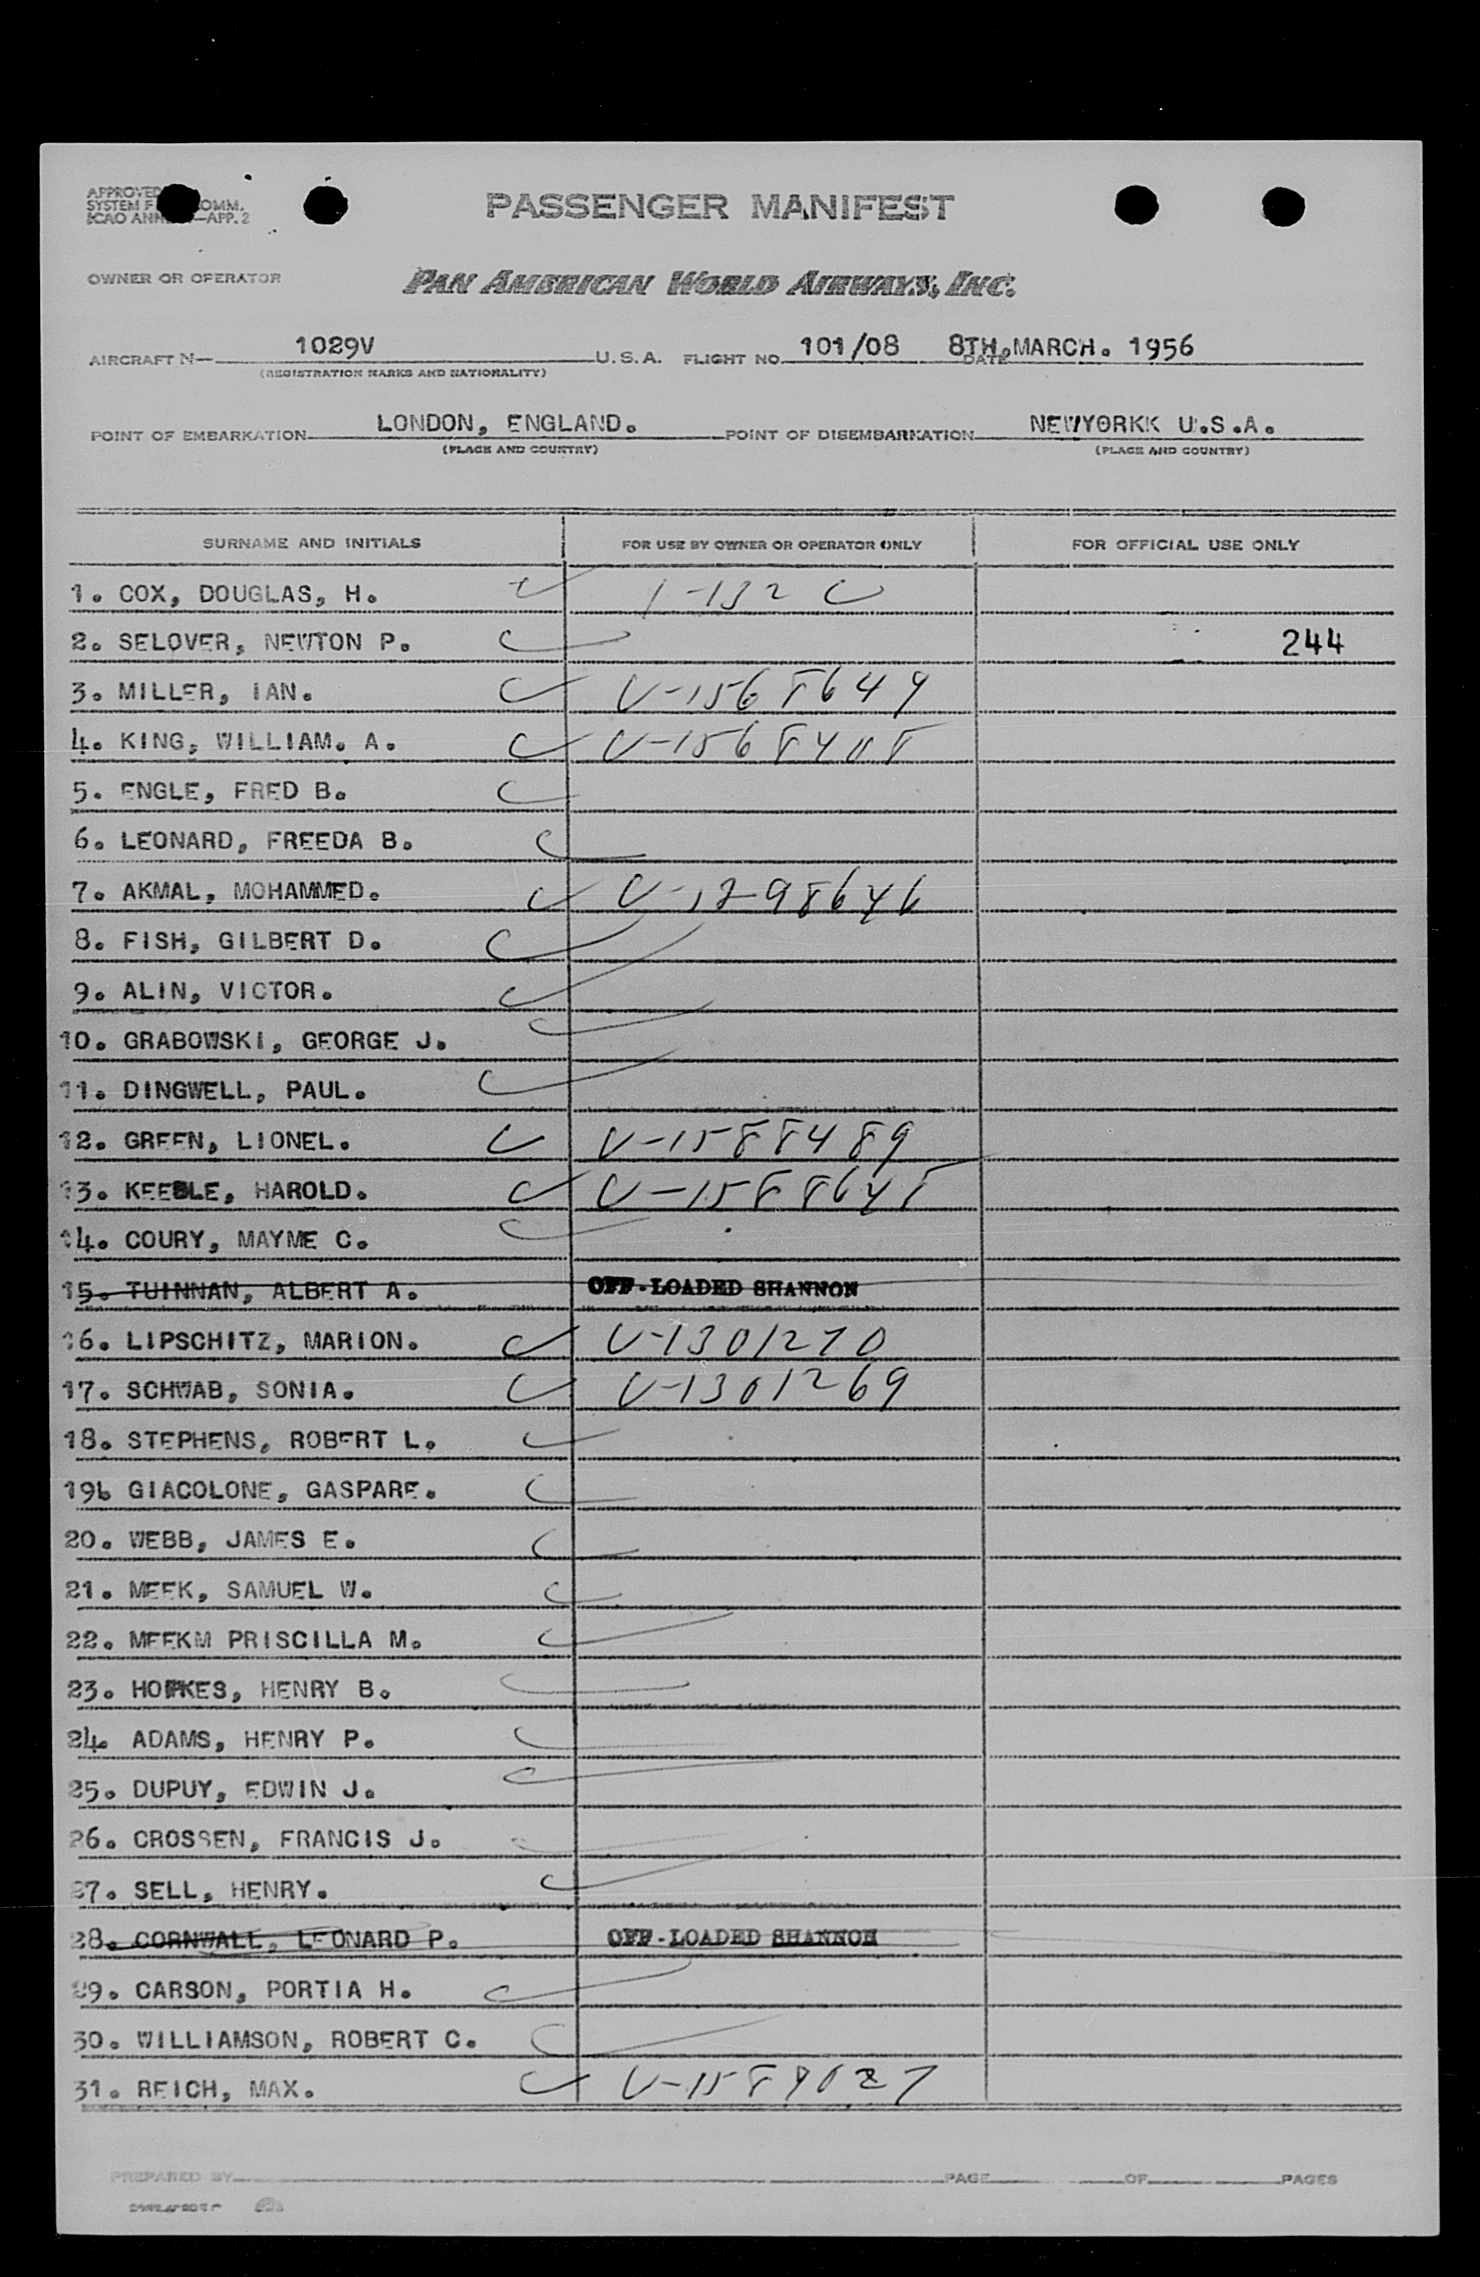 PASSENGER MANIFEST
OWNER OR OPERATOR PAN AMERICAN WORLD AIRWAYS, INC.
AIRCRAFT N— 1029V U.S.A. FLIGHT NO. 101/08 DATE 8TH.MARCH. 1956
(REGISTRATION MARKS AND NATIONALITY)
POINT OF EMBARKATION LONDON, ENGLAND. POINT OF DISEMBARKATION NEWYORKK U.S.A.
(PLACE AND COUNTRY) (PLACE AND COUNTRY)
SURNAME AND INITIALS FOR USE BY OWNER OR OPERATOR ONLY FOR OFFICIAL USE ONLY
1. COX, DOUGLAS, H. 1-132
2. SELOVER, NEWTON P. 244
3. MILLER, IAN. V-1568649
4. KING, WILLIAM. A. V-1568408
5. ENGLE, FRED B.
6. LEONARD, FREEDA B.
7. AKMAL, MOHAMMED. V-1298646
8. FISH, GILBERT D.
9. ALIN, VICTOR.
10. GRABOWSKI, GEORGE J.
11. DINGWELL, PAUL.
12. GREEN, LIONEL. V-1588489
13. KEEBLE, HAROLD. V-1588648
14. COURY, MAYME C.
15. TUINNAN, ALBERT A. OFF-LOADED SHANNON
16. LIPSCHITZ, MARION. V-1301270
17. SCHWAB, SONIA. V-1301269
18. STEPHENS, ROBERT L.
19b GIACOLONE, GASPARE.
20. WEBB, JAMES E.
21. MEEK, SAMUEL W.
22. MEEKM PRISCILLA M.
23. HOPKES, HENRY B.
24. ADAMS, HENRY P.
25. DUPUY, EDWIN J.
26. CROSSEN, FRANCIS J.
27. SELL, HENRY.
28. CORNWALL, LEONARD P. OFF-LOADED SHANNON
29. CARSON, PORTIA H.
30. WILLIAMSON, ROBERT C.
31. REICH, MAX. V-1589027
PREPARED BY PAGE OF PAGES